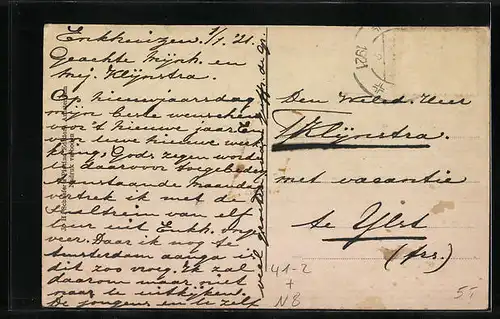 Enkhuizen. 1/1 '21.
Geachte Mijnh. en
Mej. Klijnstra.
Op nieuwjaarsdag
mijn beste wenschen
voor 't nieuwe jaar. En
Uw nieuwe werk
kring, Gods zegen word
daarvoor toegebeden
Aanstaande Maandag
vertrek ik met de
van elf
uur uit Enkh. onge
veer. Daar ik nog te
Amsterdam aanga is
dit zoo vroeg. Ik zal
daarom maar niet
naar U uitkijken.
De jongens en U zelf
veel groeten
Den Weled. Heer
Klijnstra.
met vacantie
te Ylst
(frs.)
1921
41-2
+
N8
5.-